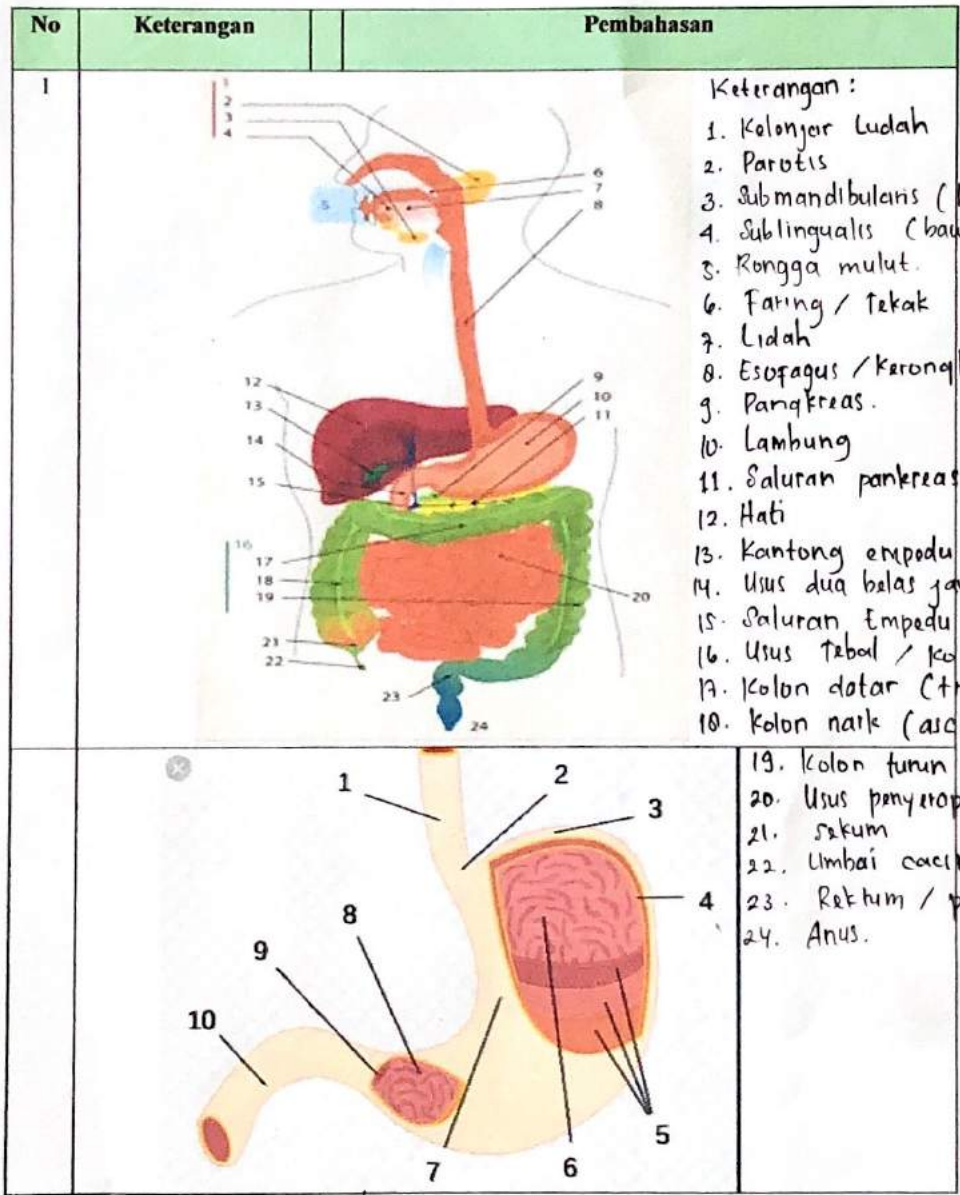 No Keterangan Pembahasan
1
1
2
3
4
5
6
7
8
9
10
11
12
13
14
15
16
17
18
19
20
21
22
23
24
Keterangan :
1. Kelenjar Ludah
2. Parotis
3. Submandibularis (
4. Sublingualis (baw
5. Rongga mulut.
6. Faring / Tekak
7. Lidah
8. Esofagus / Kerong
9. Pangkreas.
10. Lambung
11. Saluran pankreas
12. Hati
13. Kantong empedu
14. Usus dua belas ja
15. Saluran Empedu
16. Usus Tebal / Ko
17. Kolon datar (tr
18. Kolon naik (asc
1
2
3
4
5
6
7
8
9
10
19. Kolon turun
20. Usus penyerap
21. Sekum
22. Umbai caci
23. Rektum / p
24. Anus.